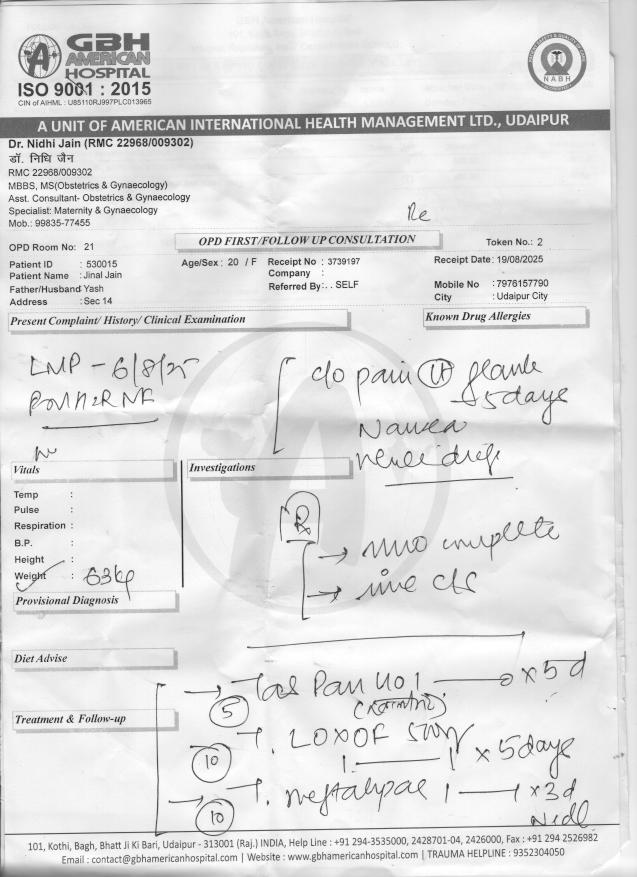 GBH
AMERICAN
HOSPITAL
ISO 9001 : 2015
CIN of AIHML : U85110RJ997PLC013965
NABH
A UNIT OF AMERICAN INTERNATIONAL HEALTH MANAGEMENT LTD., UDAIPUR
Dr. Nidhi Jain (RMC 22968/009302)
डॉ. निधि जैन
RMC 22968/009302
MBBS, MS(Obstetrics & Gynaecology)
Asst. Consultant- Obstetrics & Gynaecology
Specialist: Maternity & Gynaecology
Mob.: 99835-77455
Re
OPD Room No: 21
OPD FIRST/FOLLOW UP CONSULTATION
Token No.: 2
Patient ID : 530015 Age/Sex : 20 / F Receipt No : 3739197 Receipt Date: 19/08/2025
Patient Name : Jinal Jain Company :
Father/Husband Yash Referred By: . . SELF Mobile No :7976157790
Address : Sec 14 City : Udaipur City
Present Complaint/ History/ Clinical Examination
Known Drug Allergies
LMP - 6/8/25
c/o pain
5days
Nausea
Vitals
Investigations
Temp :
Pulse :
Respiration :
B.P. :
Height :
Weight : 63kg
R
→ complete
→ c/s
Provisional Diagnosis
Diet Advise
Treatment & Follow-up
→ Tab Pan 40 1 — 0 x 5d
5
T. LOXOF 500mg
10
1 — 1 x 5days
→ T. meftalspas 1 — 1 x 3d
10
101, Kothi, Bagh, Bhatt Ji Ki Bari, Udaipur - 313001 (Raj.) INDIA, Help Line : +91 294-3535000, 2428701-04, 2426000, Fax : +91 294 2526982
Email : contact@gbhamericanhospital.com | Website : www.gbhamericanhospital.com | TRAUMA HELPLINE : 9352304050